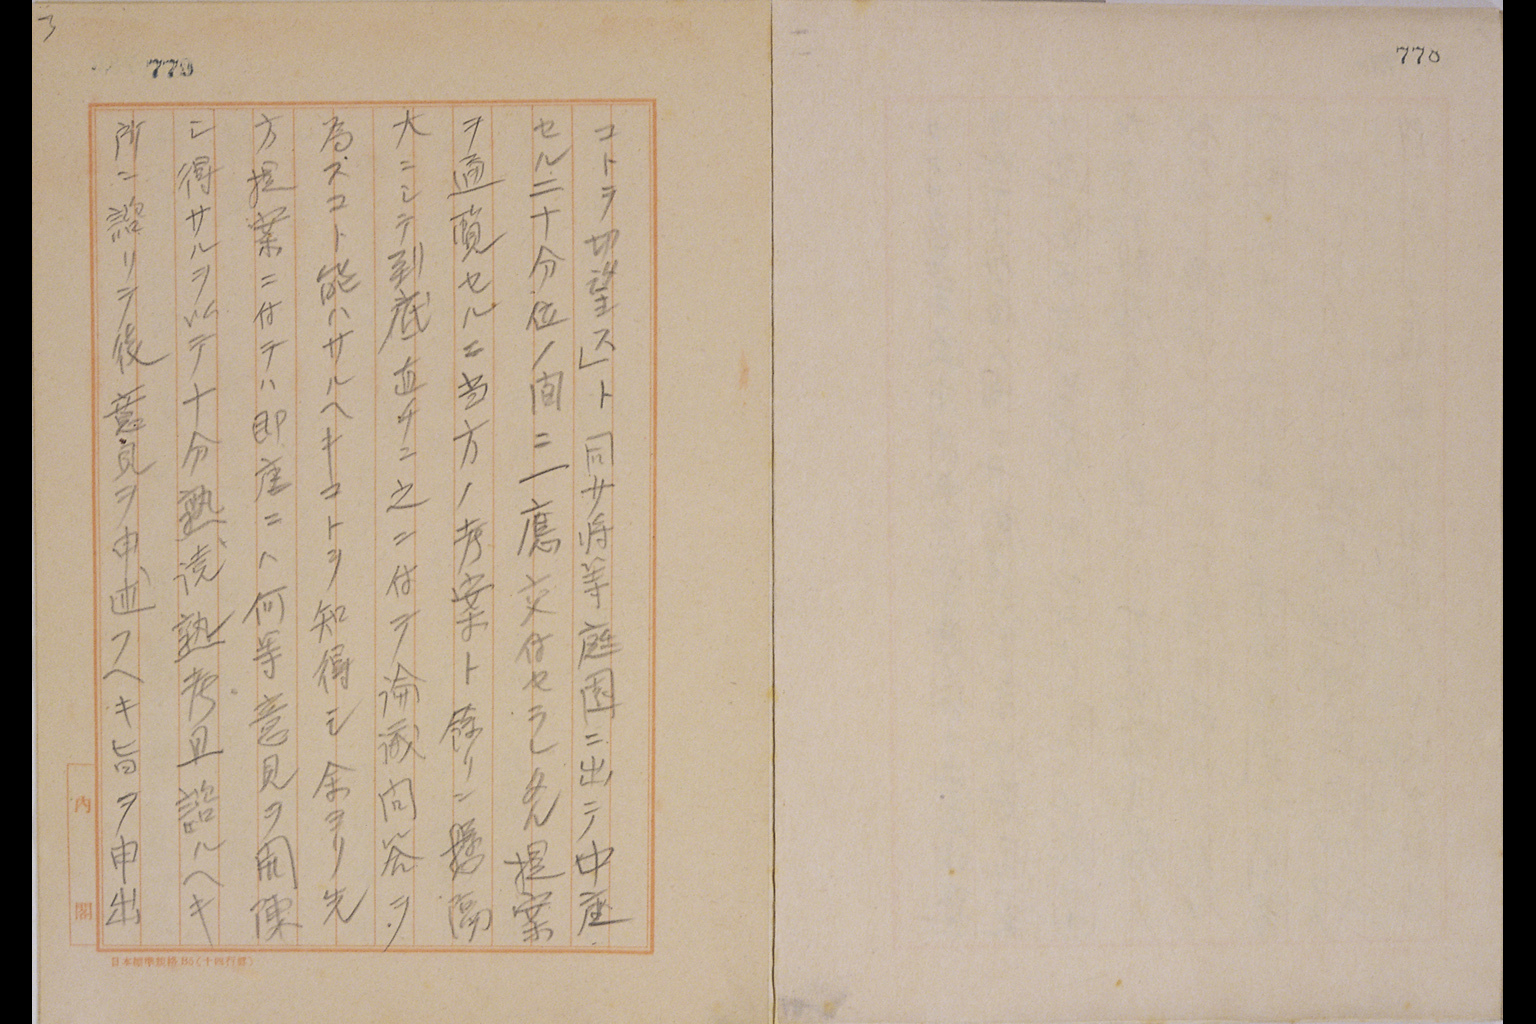 770
779
コトヲ切望ス」ト同少将等庭園ニ出テ中座
セル二十分位ノ間ニ一應交付セラレタル提案
ヲ通覧セルニ当方ノ考案ト餘リニ懸隔
大ニシテ到底直チニ之ニ付テ論議問答ヲ
為スコト能ハサルヘキコトヲ知得シ余ヨリ先
方提案ニ付テハ即座ニハ何等意見ヲ開陳
シ得サルヲ以テ十分熟読熟考且諮ルヘキ
所ニ諮リテ後意見ヲ申述フヘキ旨ヲ申出
内閣
日本標準規格B5(十四行罫)